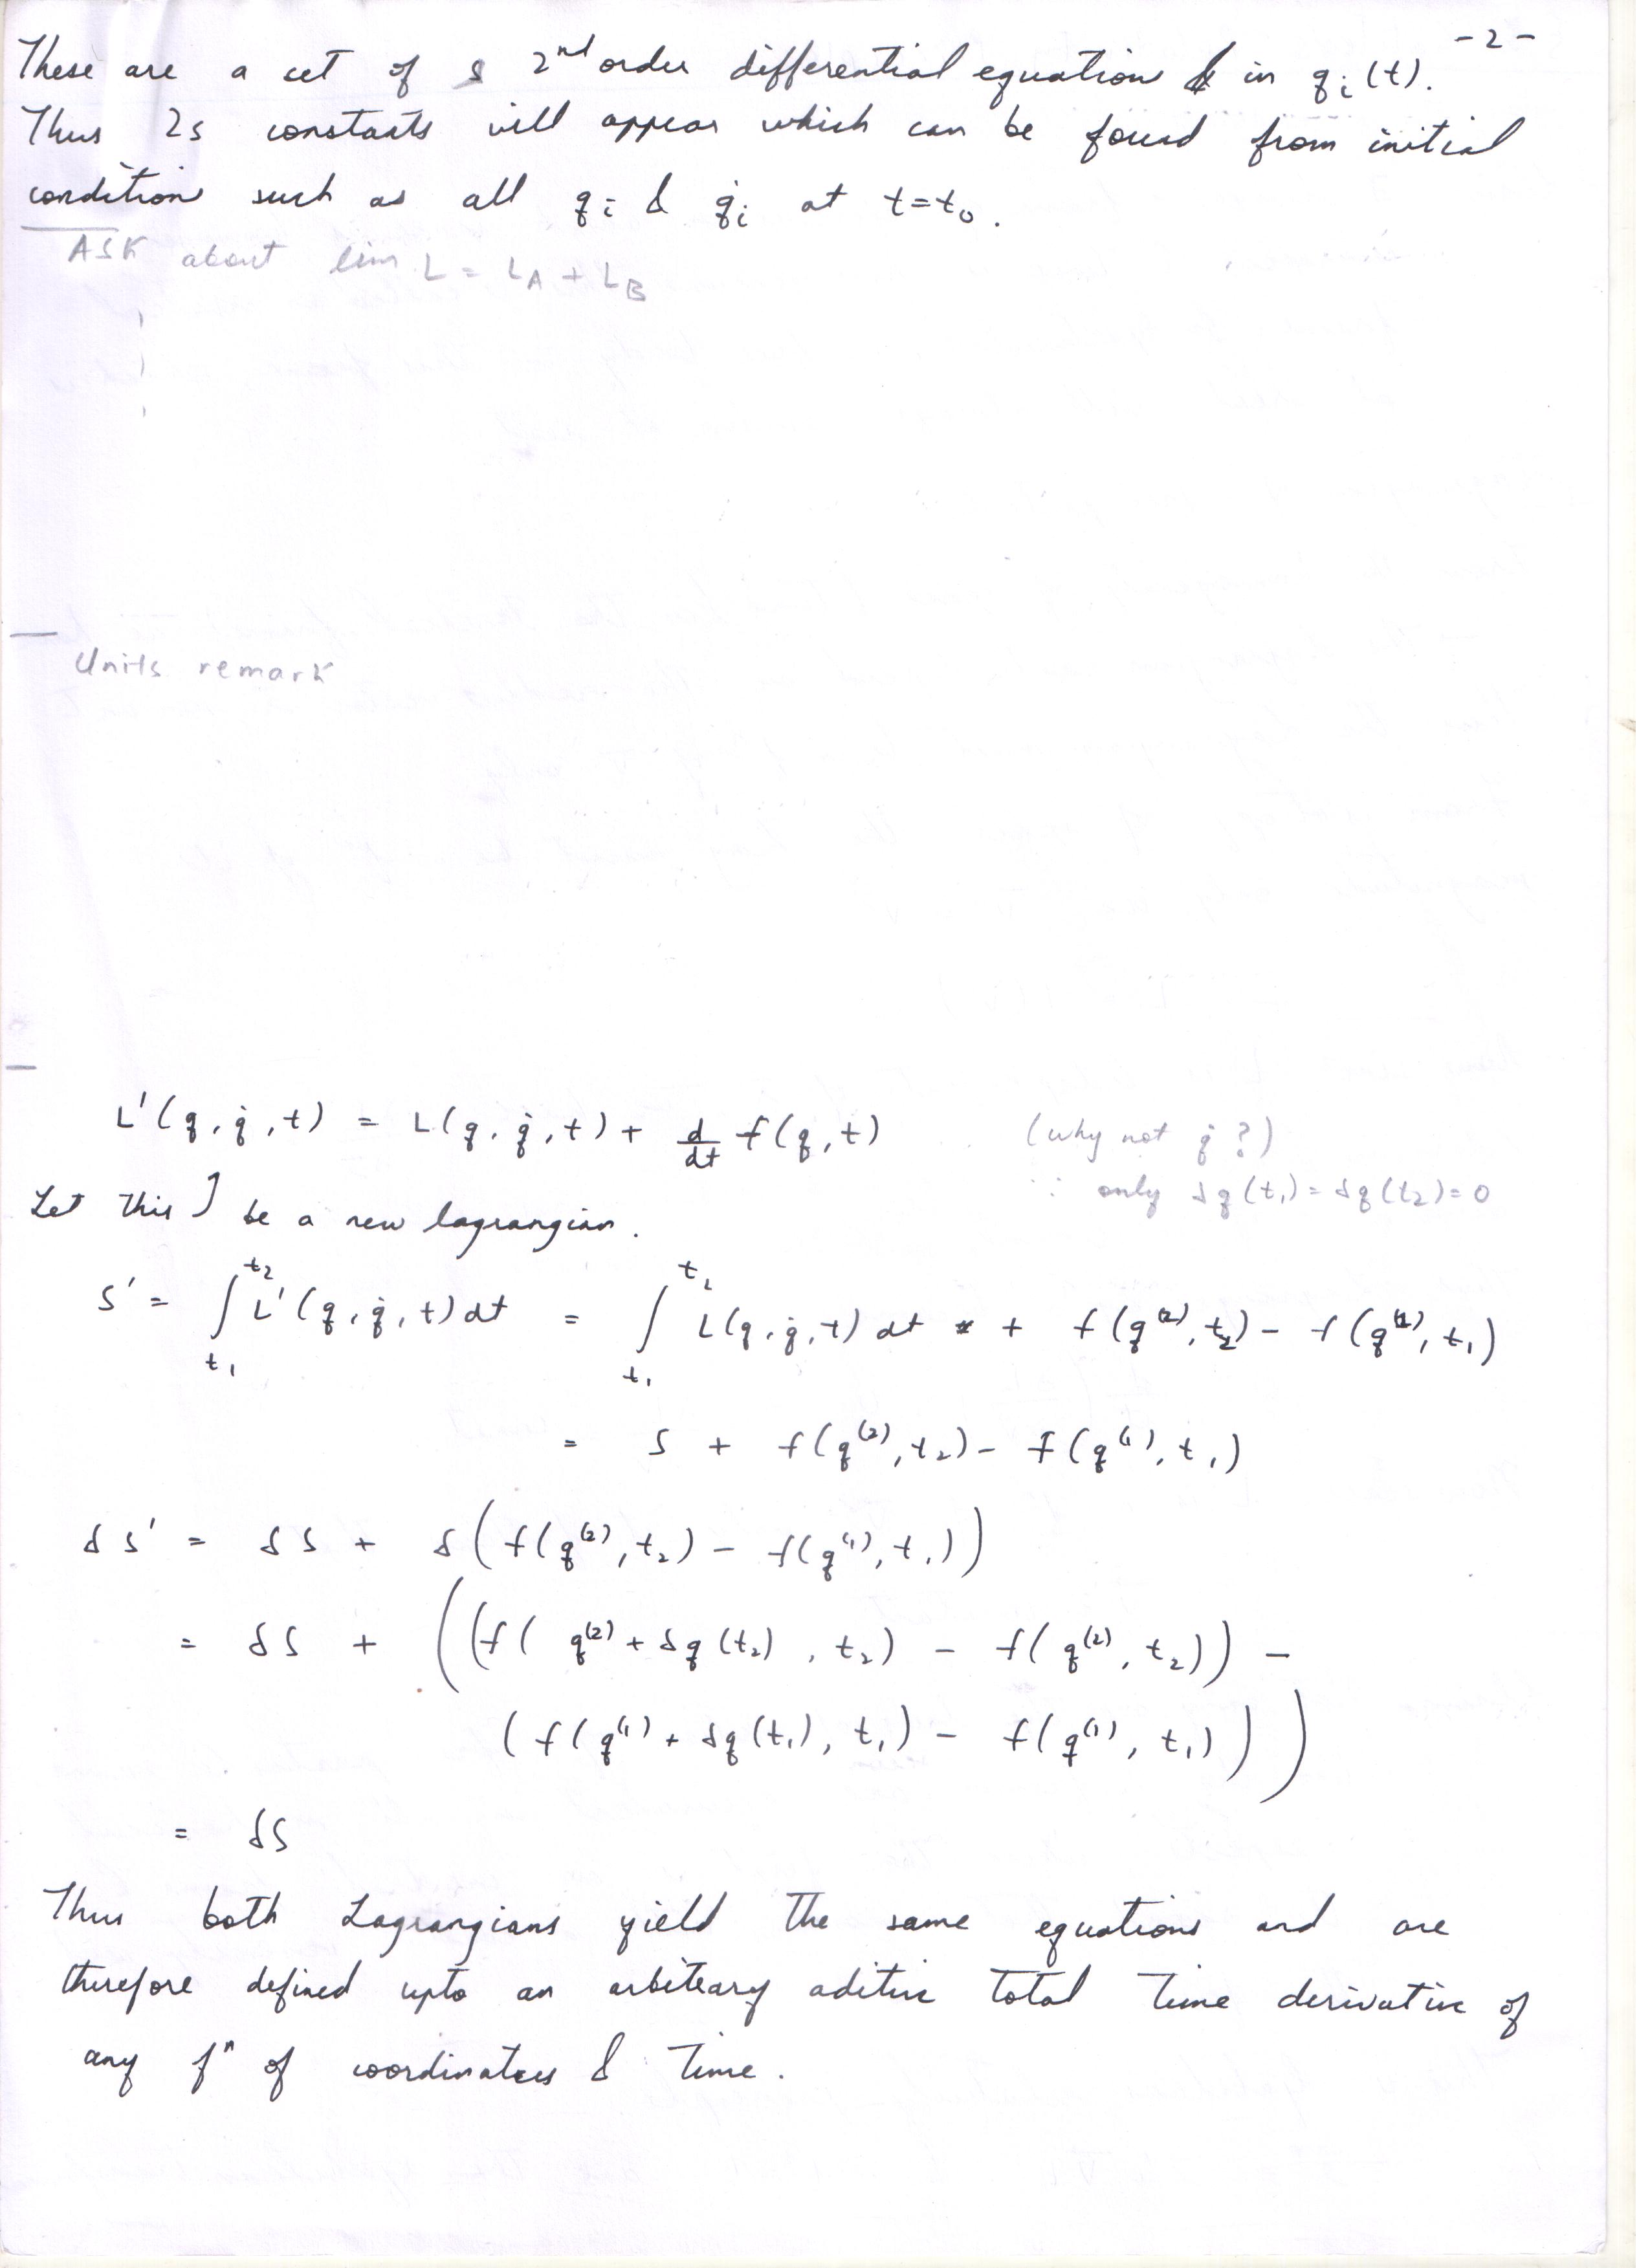 -2-
These are a set of s 2nd order differential equation in qᵢ(t).
Thus 2s constants will appear which can be found from initial
condition such as all qᵢ & q̇ᵢ at t=t₀.
ASK about lim L = L_A + L_B
Units remark
L'(q, q̇, t) = L(q, q̇, t) + d/dt f(q, t) (why not q̇ ?)
∵ only δq(t₁) = δq(t₂) = 0
Let this be a new lagrangian.
S' = ∫_{t₁}^{t₂} L'(q, q̇, t) dt = ∫_{t₁}^{t₂} L(q, q̇, t) dt + f(q⁽²⁾, t₂) - f(q⁽¹⁾, t₁)
= S + f(q⁽²⁾, t₂) - f(q⁽¹⁾, t₁)
δS' = δS + δ(f(q⁽²⁾, t₂) - f(q⁽¹⁾, t₁))
= δS + ((f(q⁽²⁾ + δq(t₂), t₂) - f(q⁽²⁾, t₂)) -
(f(q⁽¹⁾ + δq(t₁), t₁) - f(q⁽¹⁾, t₁)))
= δS
Thus both Lagrangians yield the same equations and are
therefore defined upto an arbiteary aditive total time derivative of
any fⁿ of coordinates & time.